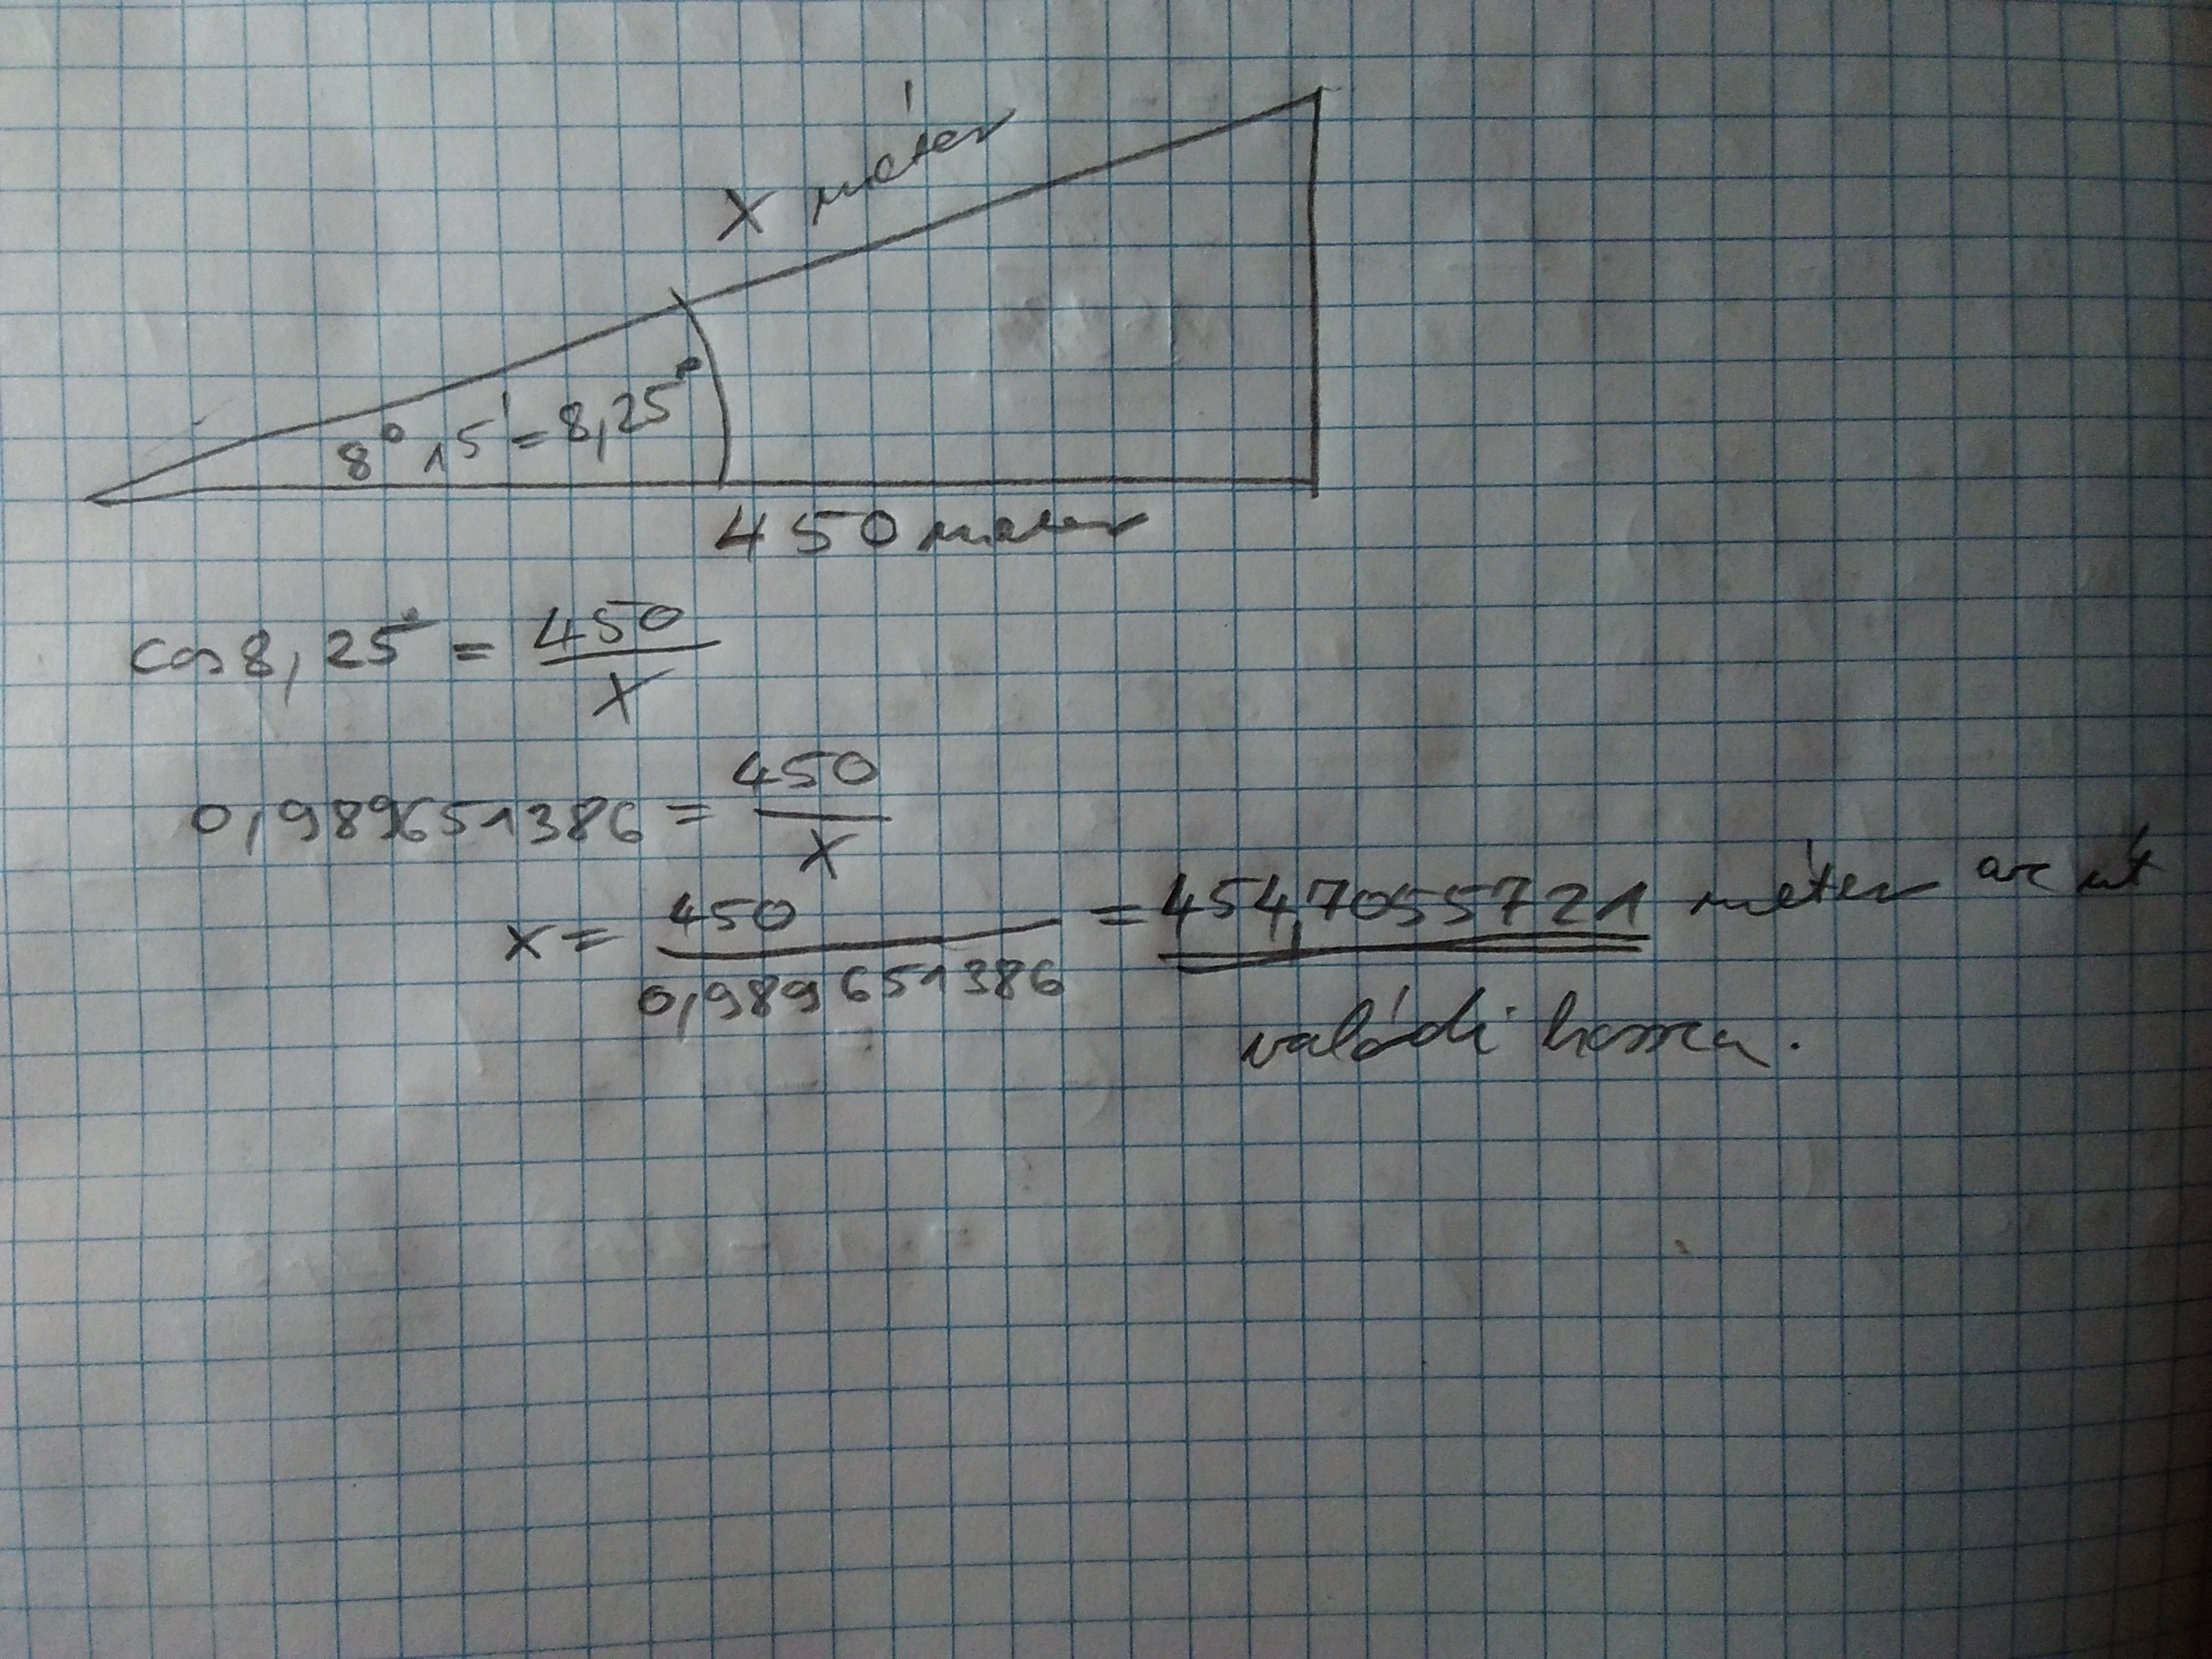 x méter
8° 15' = 8,25°
450 méter
cos 8,25° = 450/x
0,989651386 = 450/x
x = 450/0,989651386 = 454,7055721 méter az út
valódi hossza.